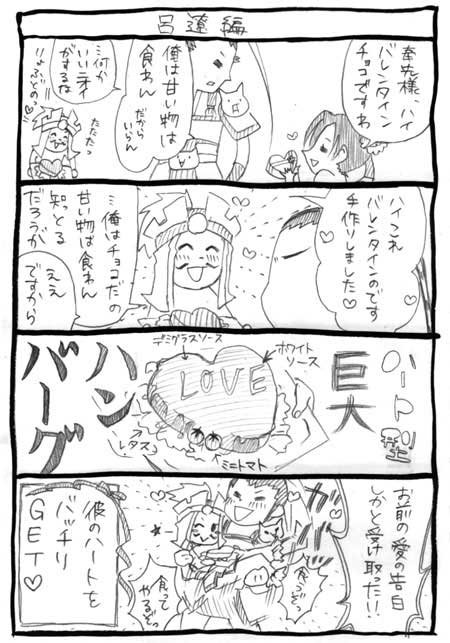 呂蓮編
奉先様、ハイ
バレンタイン
チョコですわ
俺は甘い物は
食わん
だから
いらん
ミ何か
いい香
がするな
たたたっ
ハイこれ
バレンタインのです
手作りしました♡
ミ俺はチョコだの
甘い物は食わん
知っとる
だろうが
ええ
ですから
ハート型
巨大
ハン
バーグ
デミグラスソース
ホワイト
ソース
LOVE
レタス
ミニトマト
お前の愛の告白
しかと受け取った!!
ガバッ
食うぞっ
食って
やるぞっ
彼のハートを
バッチリ
GET♡